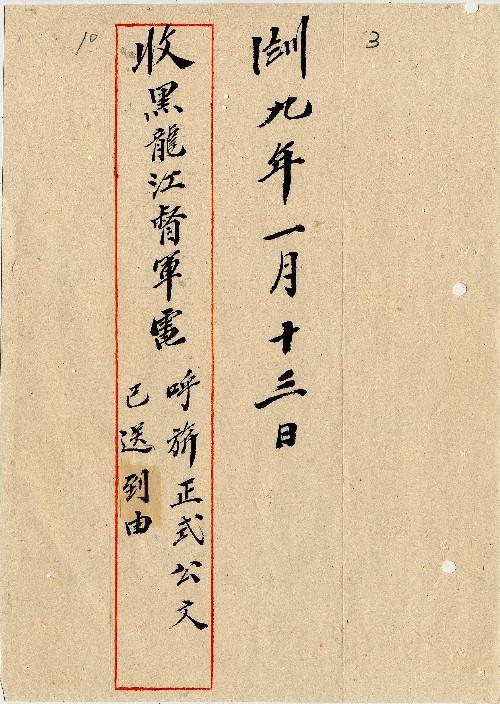 3
九年一月十三日
10
收黑龍江督軍電
呼旂正式公文
已送到由